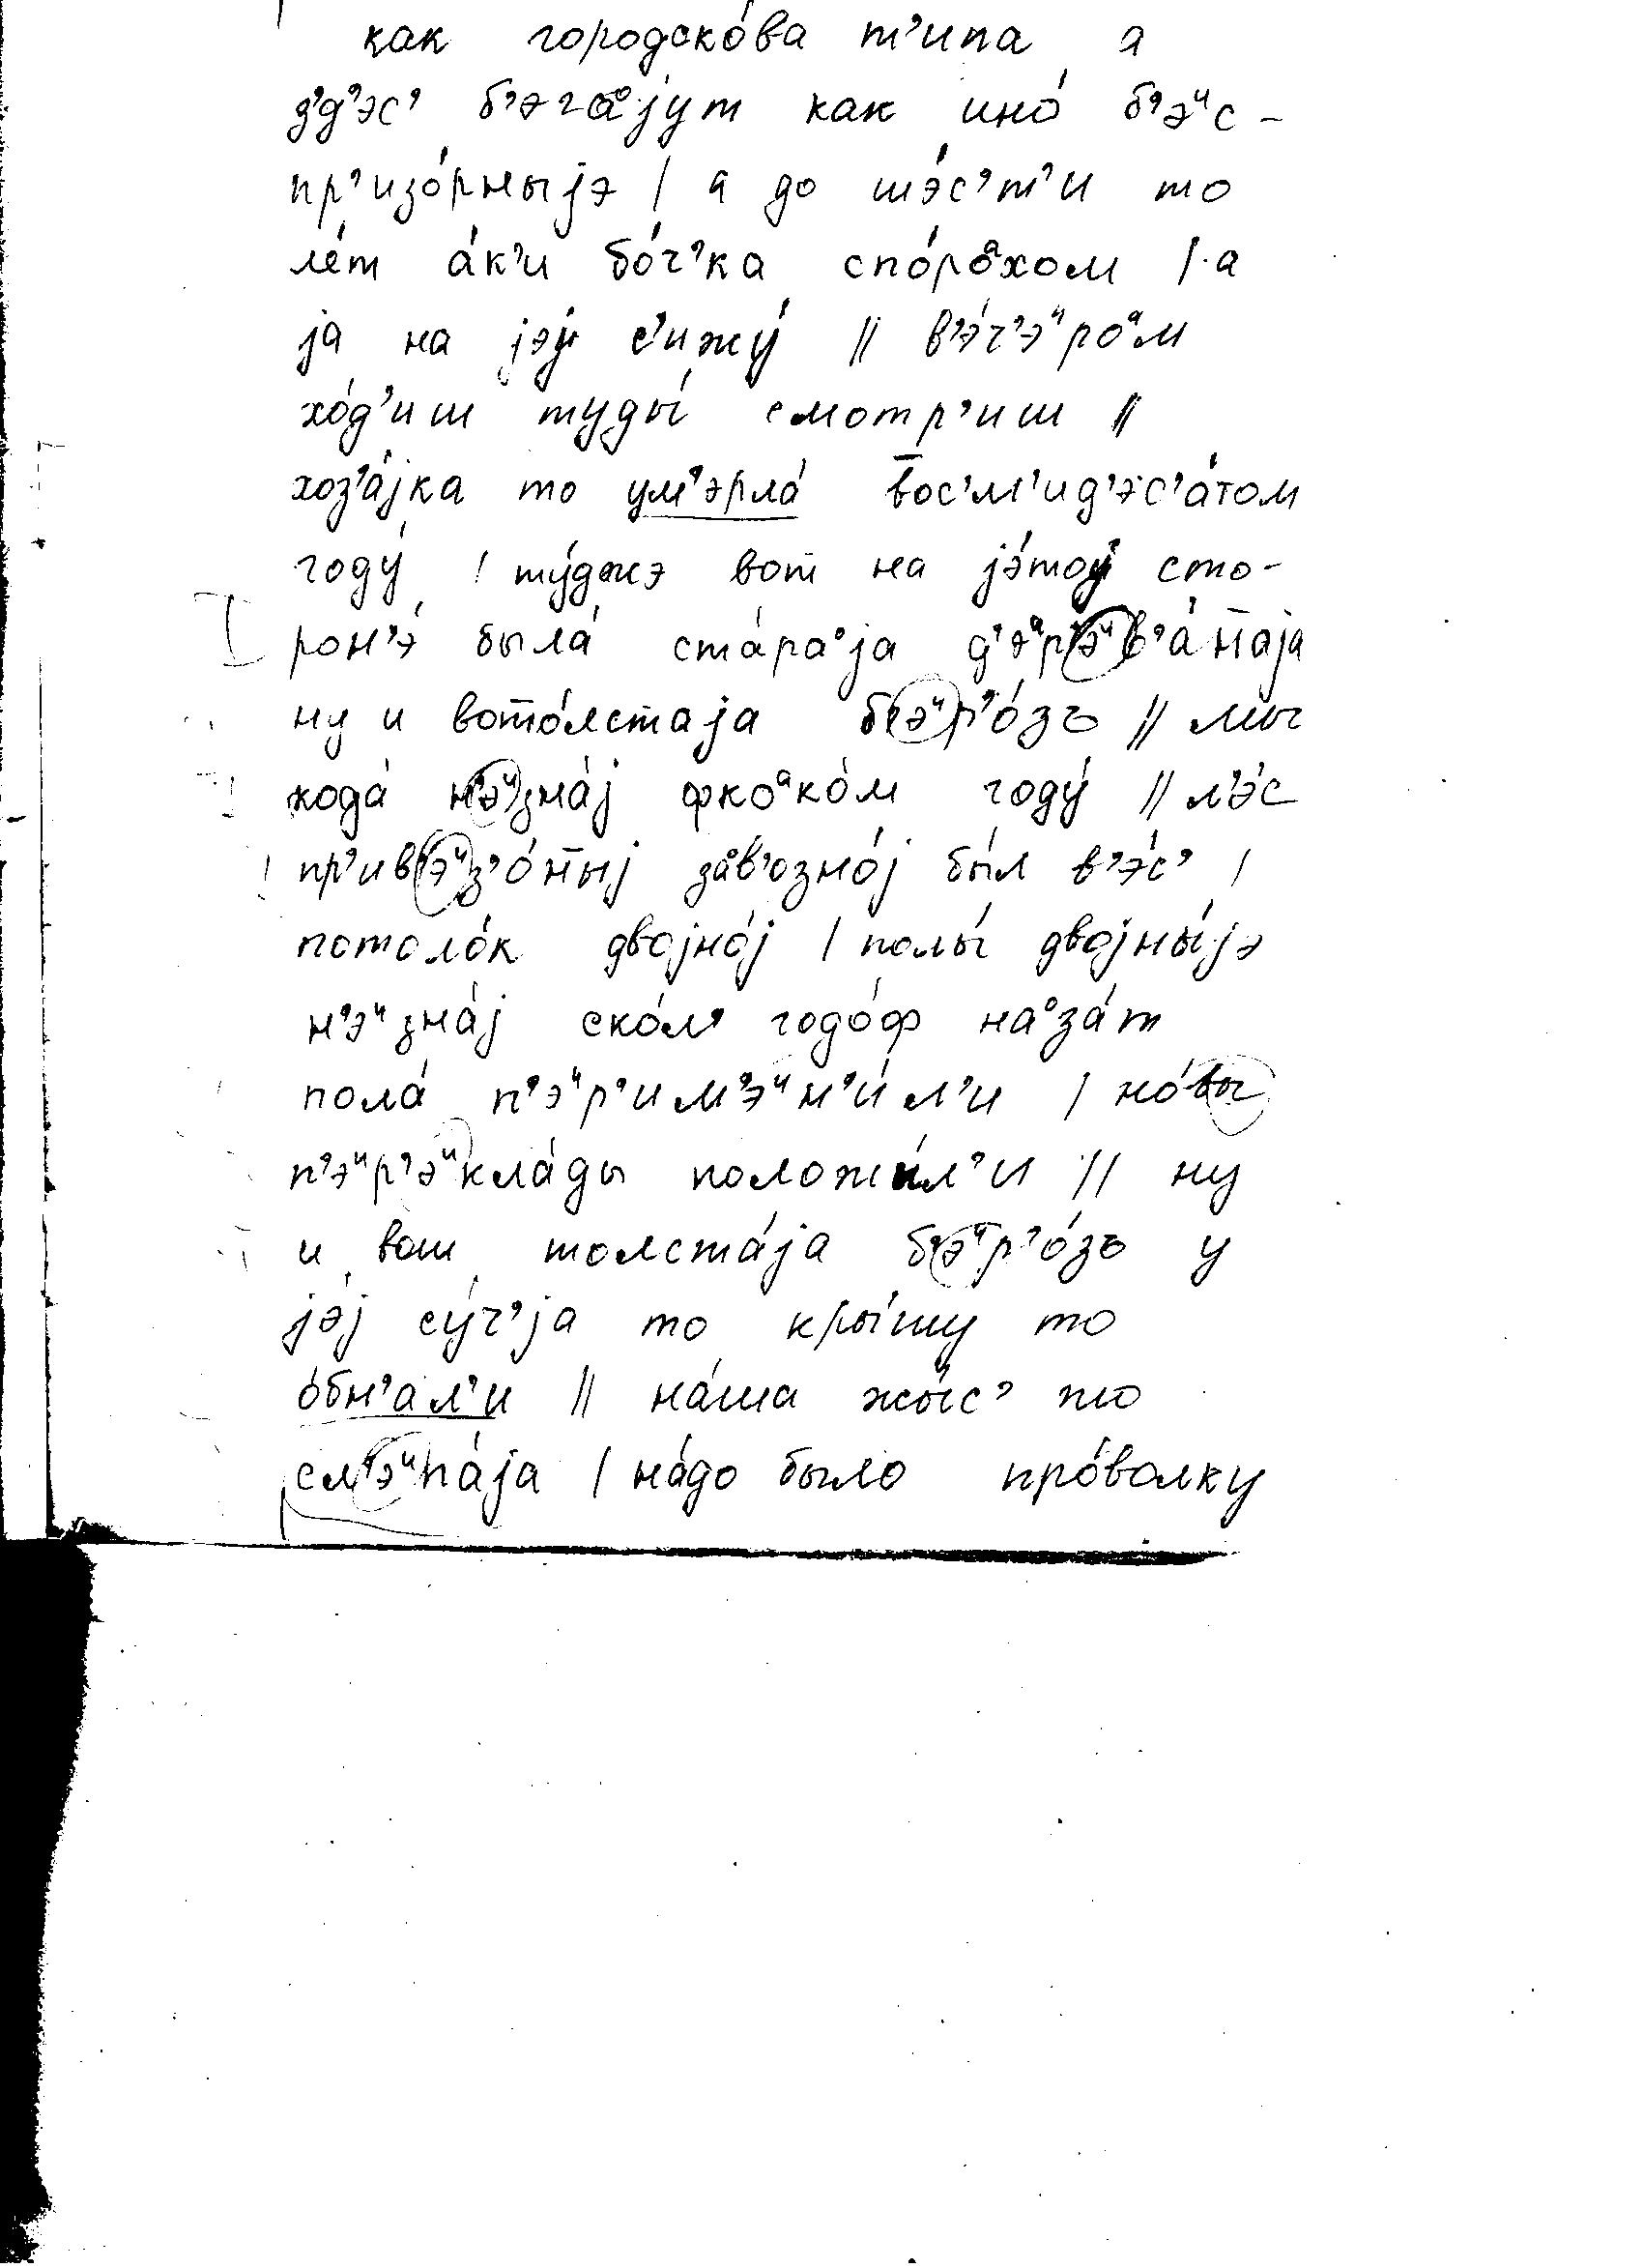 как городско́ва т’ипа а
з’д’эс’ б’эга̊јут как ино́ б’эᶦс –
пр’изо́рныјэ / а до шэ́с’т’и то
ле́т а́к’и бо́ч’ка спо́роᵃхом / а
ја на јэй с’ижу́ // в’э́ч’эᶦроᵃм
хо́д’иш туды́ смотр’иш //
хоз’а́јка то ум’эрла́ в̄ос’м’ид’эс’а́том
году́ / ту́джэ вот̄ на јэ́той сто-
рон’э́ была́ ста́раºја д’эᶦр’эᶦв’а́н̄аја
ну и вот̄о́лстаја б’эᶦр’о́зъ // мы
кода́ н’эᶦзна́ј фкоᵃко́м году́ // л’э́с
пр’ив’эᶦз’о́н̄ыј за̊в’озно́ј бы́л в’э́с’ /
потоло́к двојно́ј / полы́ двојны́јэ
н’эᶦзна́ј ско́л’ годо́ф наºза́т
пола́ п’эᶦр’им’эᶦн’и́л’и / но́вы
п’эᶦр’эᶦкла́ды положи́л’и // ну
и вот толста́ја б’эᶦр’о́зъ у
јэј су́ч’ја то кры́шу то
о́бн’ал’и // на́ша жы́с’ то
сл’эᶦпа́ја / на́до было про́волку